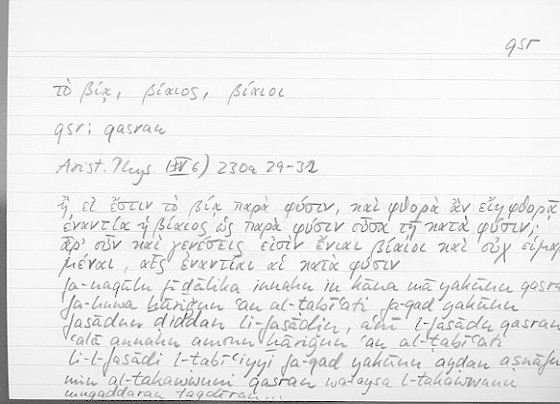 qsr
τὸ βίᾳ, βίαιος, βίαιοι
qsr; qasran
Arist. Phys. 6) 230a 29-32
ἢ εἰ ἔστιν τὸ βίᾳ παρὰ φύσιν, καὶ φθορὰ ἂν εἴη φθορᾷ
ἐναντία ἡ βίαιος ὡς παρὰ φύσιν οὖσα τῇ κατὰ φύσιν;
ἆρ' οὖν καὶ γενέσεις εἰσὶν ἔνιαι βίαιοι καὶ οὐχ εἱμαρ
μέναι, αἷς ἐναντίαι αἱ κατὰ φύσιν
fa-naqūlu fī ḏālika innahu in kāna mā yakūnu qasra
fa-huwa ḫāriǧun ʿan al-ṭabīʿati fa-qad yakūnu
fasādun ḍiddan li-fasādin, aʿnī l-fasādu qasran
ʿalā annahu amrun ḫāriǧun ʿan al-ṭabīʿati
li-l-fasādi l-ṭabīʿiyyi fa-qad yakūnu ayḍan aṣnāfu
min al-takawwuni qasran wa-laysa l-takawwunu
muqaddaran taqdīran...